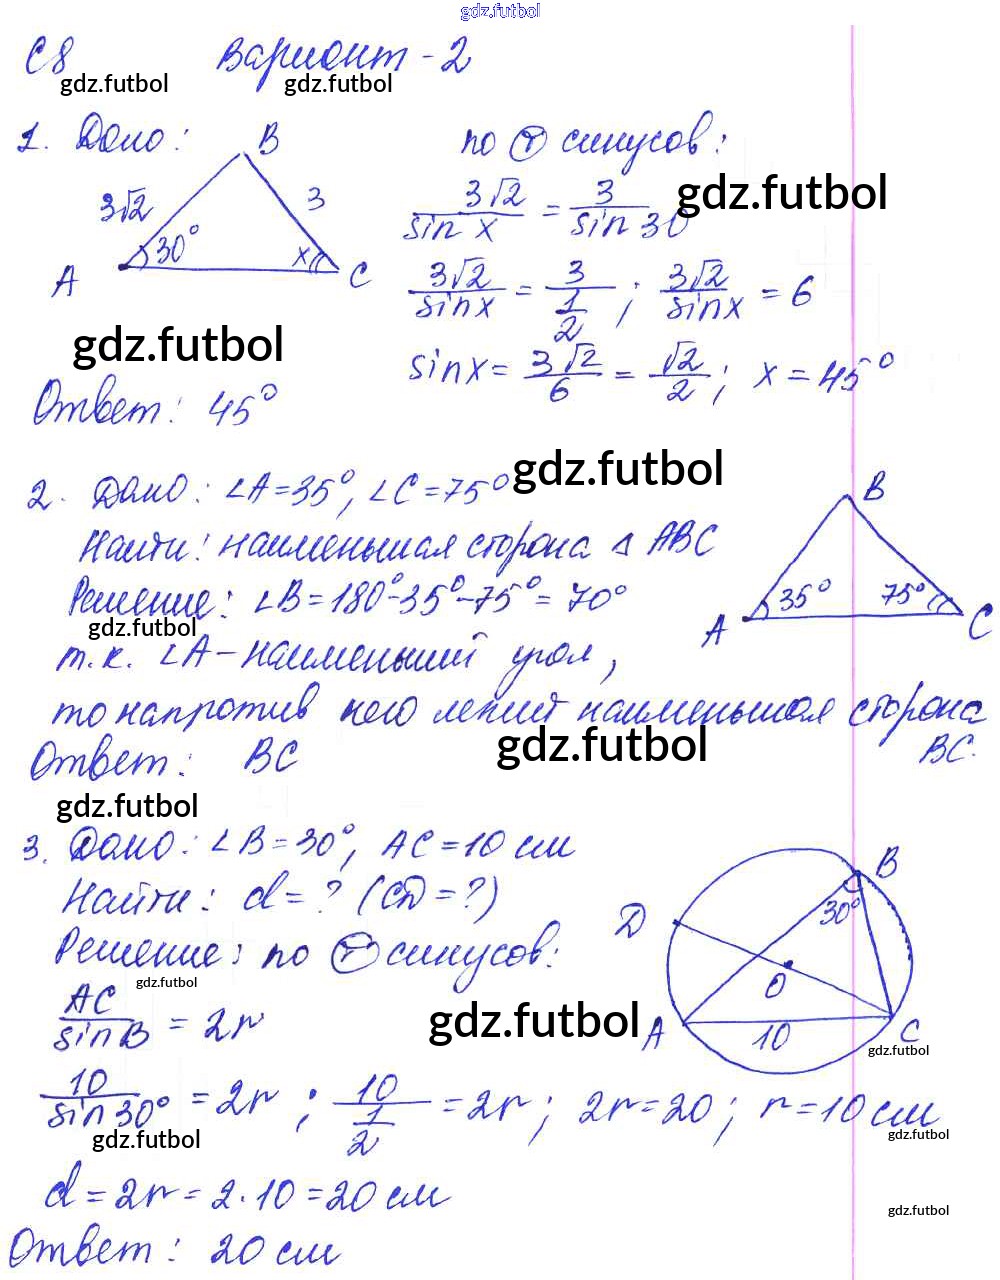 gdz.futbol
С8 Вариант - 2
gdz.futbol gdz.futbol
1. Дано: B
3√2 3
30° x
A C
по т синусов:
3√2/sin x = 3/sin 30
gdz.futbol
3√2/sin x = 3/(1/2) ; 3√2/sin x = 6
gdz.futbol
sin x = 3√2/6 = √2/2 ; x = 45°
Ответ: 45°
2. Дано: ∠A = 35°, ∠C = 75°
gdz.futbol
B
Найти: наименьшая сторона Δ ABC
Решение: ∠B = 180° - 35° - 75° = 70°
35° 75°
A C
gdz.futbol
т.к. ∠A - наименьший угол,
то напротив него лежит наименьшая сторона
BC.
gdz.futbol
Ответ: BC
gdz.futbol
3. Дано: ∠B = 30°, AC = 10 см
Найти: d = ? (CD = ?)
Решение: по т синусов:
gdz.futbol
B
30°
D
O
A 10 C
gdz.futbol
AC/sin B = 2r
gdz.futbol
10/sin 30° = 2r ; 10/(1/2) = 2r ; 2r = 20 ; r = 10 см
gdz.futbol gdz.futbol
d = 2r = 2 · 10 = 20 см
gdz.futbol
Ответ: 20 см